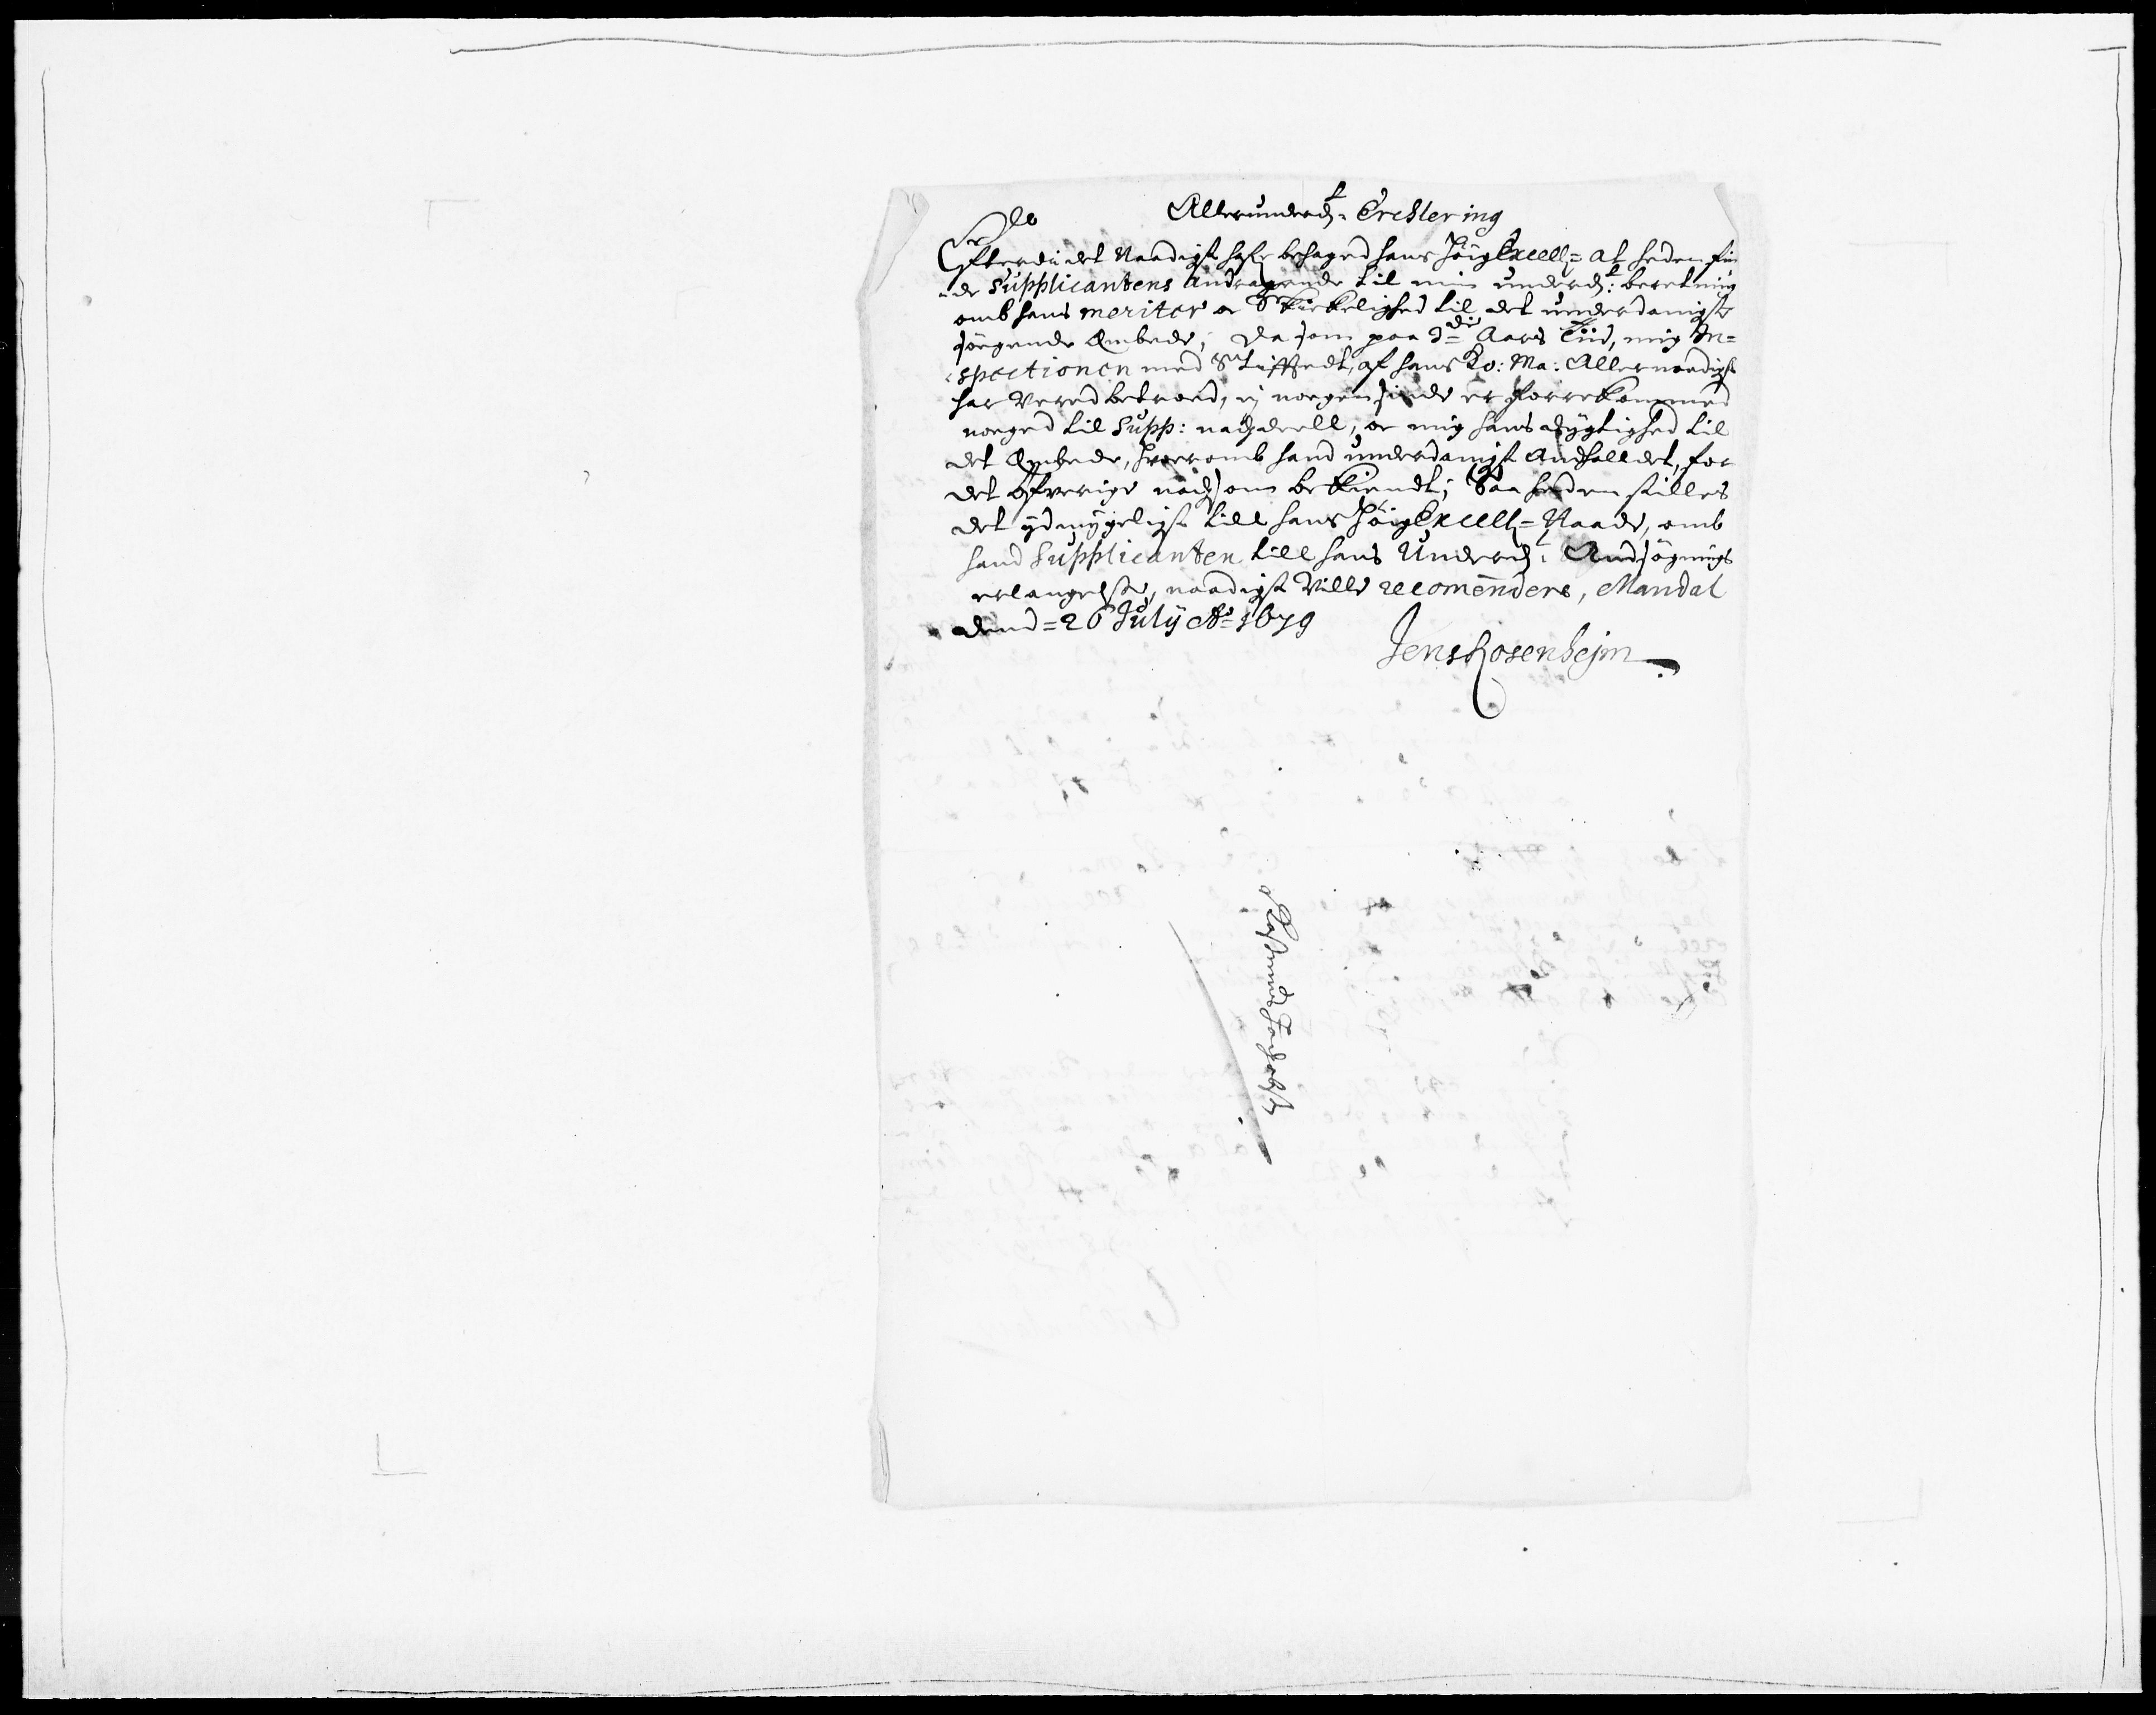 Allerunderd: Erclering
Efterdi det Naadigst hafr behaged hans höig Excell= at heden fin
=de Supplicantens Andragende til min underd: beretning
omb hans meriter oc Skickelighed til det underdanigste
sögende Embede, Da som paa 3die Aars Tiid, mig In=
=spectionen med Stifftedt, af hans Ko: Ma: Allernaadigst
har Vered betroed, ej nogensinde er forrekommed
noeged til Supp: nachdeell, oc mig hans dygtighed til
det Embede, hvoromb hand underdanigst Andholldet, for
det öfverige nochsom bekiendt; Saa heden stilles
det ydmygeligst till hans höig Excell= Naade, omb
hand Supplicanten till hans Underd: Andsögnings
erlangelse, naadigst Ville recomendere, Mandal
dend= 26 July Ao= 1679
Jens Rosenhejm